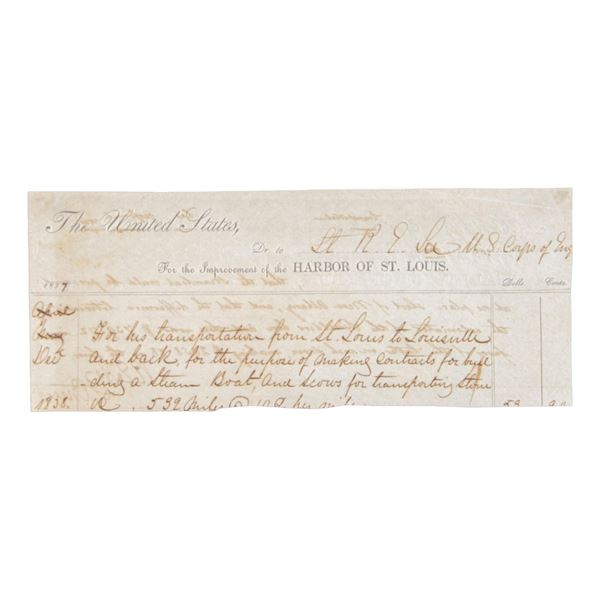 The United States,
Dr. to Lt R. E. Lee U.S. Corps of Eng
For the Improvement of the HARBOR OF ST. LOUIS.
1837 Dolls Cents.
April
Dec For his transportation from St. Louis to Louisville
and back for the purpose of making contracts for buil
ding a Steam Boat, and scows for transporting stone
1838. 532 Miles @ 10 ¢ per mile 53